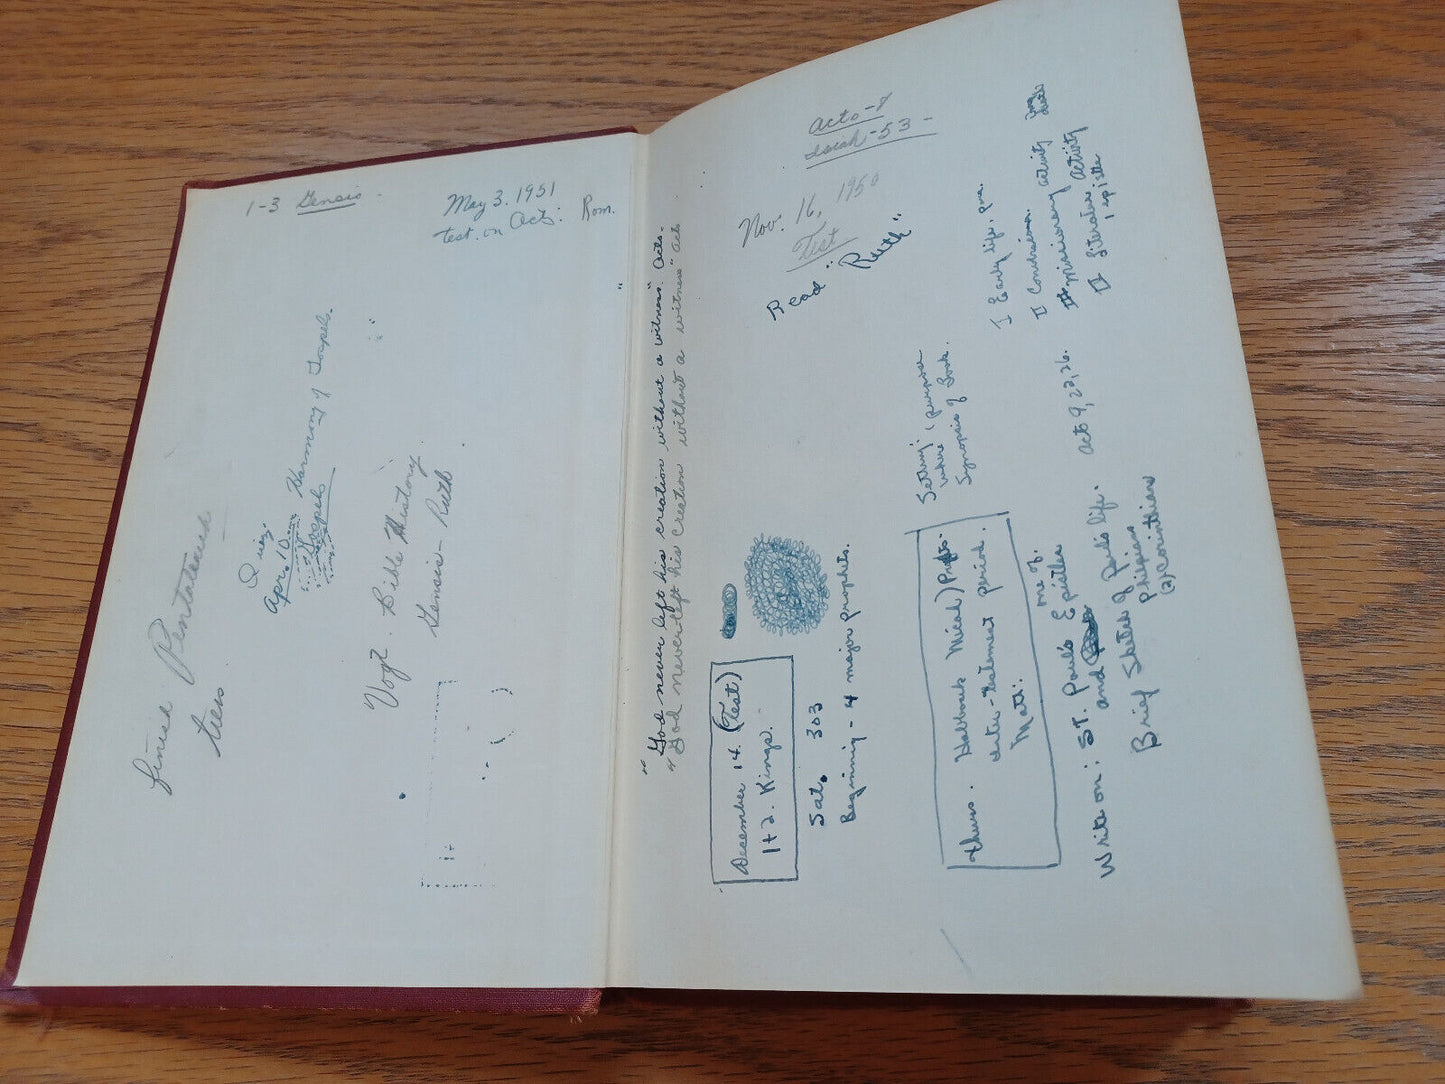 1-3 Genesis
May 3. 1951
test. on Acts: Rom.
Quiz
Apr. 10 - Harmony of Gospels.
Gospels
finish Pentateuch
Vogt. Bible History
Genesis - Ruth
Acts-8
Isaiah-53-
Nov. 16, 1950
Test
Read "Ruth"
"God never left his creation without a witness." Acts.
"God never left his creation without a witness" Acts
December 14. (Test)
1+2. Kings.
Sat. 303
Beginning - 4 major prophets.
Setting, purpose
where
Synopsis of book.
thurs. Habbouk Micah) Profts.
inter-testament period.
Math:
I Early life,
II Conversion.
III missionary activity
IV literature activity
1 epistle
one of.
Write on: ST. Paul's Epistles
and
Brief Sketch of Pauls life. Acts 9, 22, 26.
Philipians
(2) Corinthians